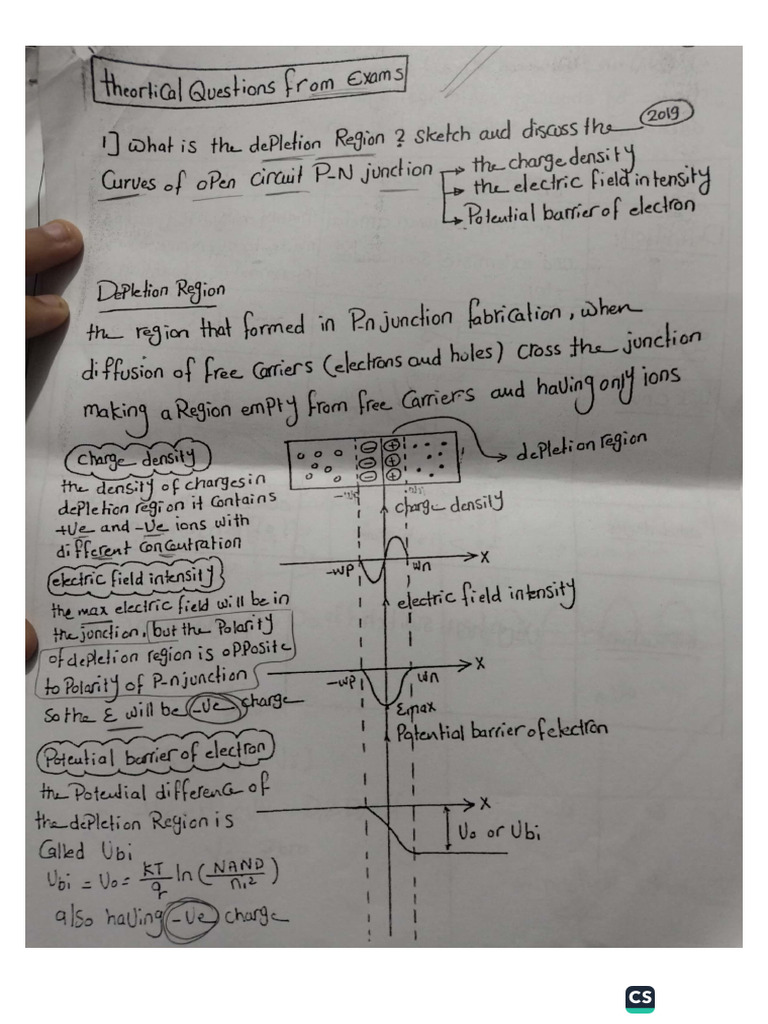 Theortical Questions from Exams
1] What is the depletion Region ? sketch and discuss the 2019
Curves of open circuit P-N junction → the charge density
→ the electric field intensity
→ Potential barrier of electron
Depletion Region
the region that formed in P-n junction fabrication, when
diffusion of free carriers (electrons and holes) cross the junction
making a Region empty from free carriers and having only ions
charge density
the density of charges in
depletion region it contains
+Ve and -Ve ions with
different concentration
depletion region
-wp wn
charge density
-wp wn X
electric field intensity
the max electric field will be in
the junction, but the Polarity
of depletion region is opposite
to Polarity of P-n junction
So the ε will be -Ve charge
electric field intensity
-wp wn X
εmax
Potential barrier of electron
the Potential difference of
the depletion Region is
Called Ubi
Ubi = Uo = KT/q ln (NAND/ni²)
also having -Ve charge
Potential barrier of electron
X
Uo or Ubi
CS